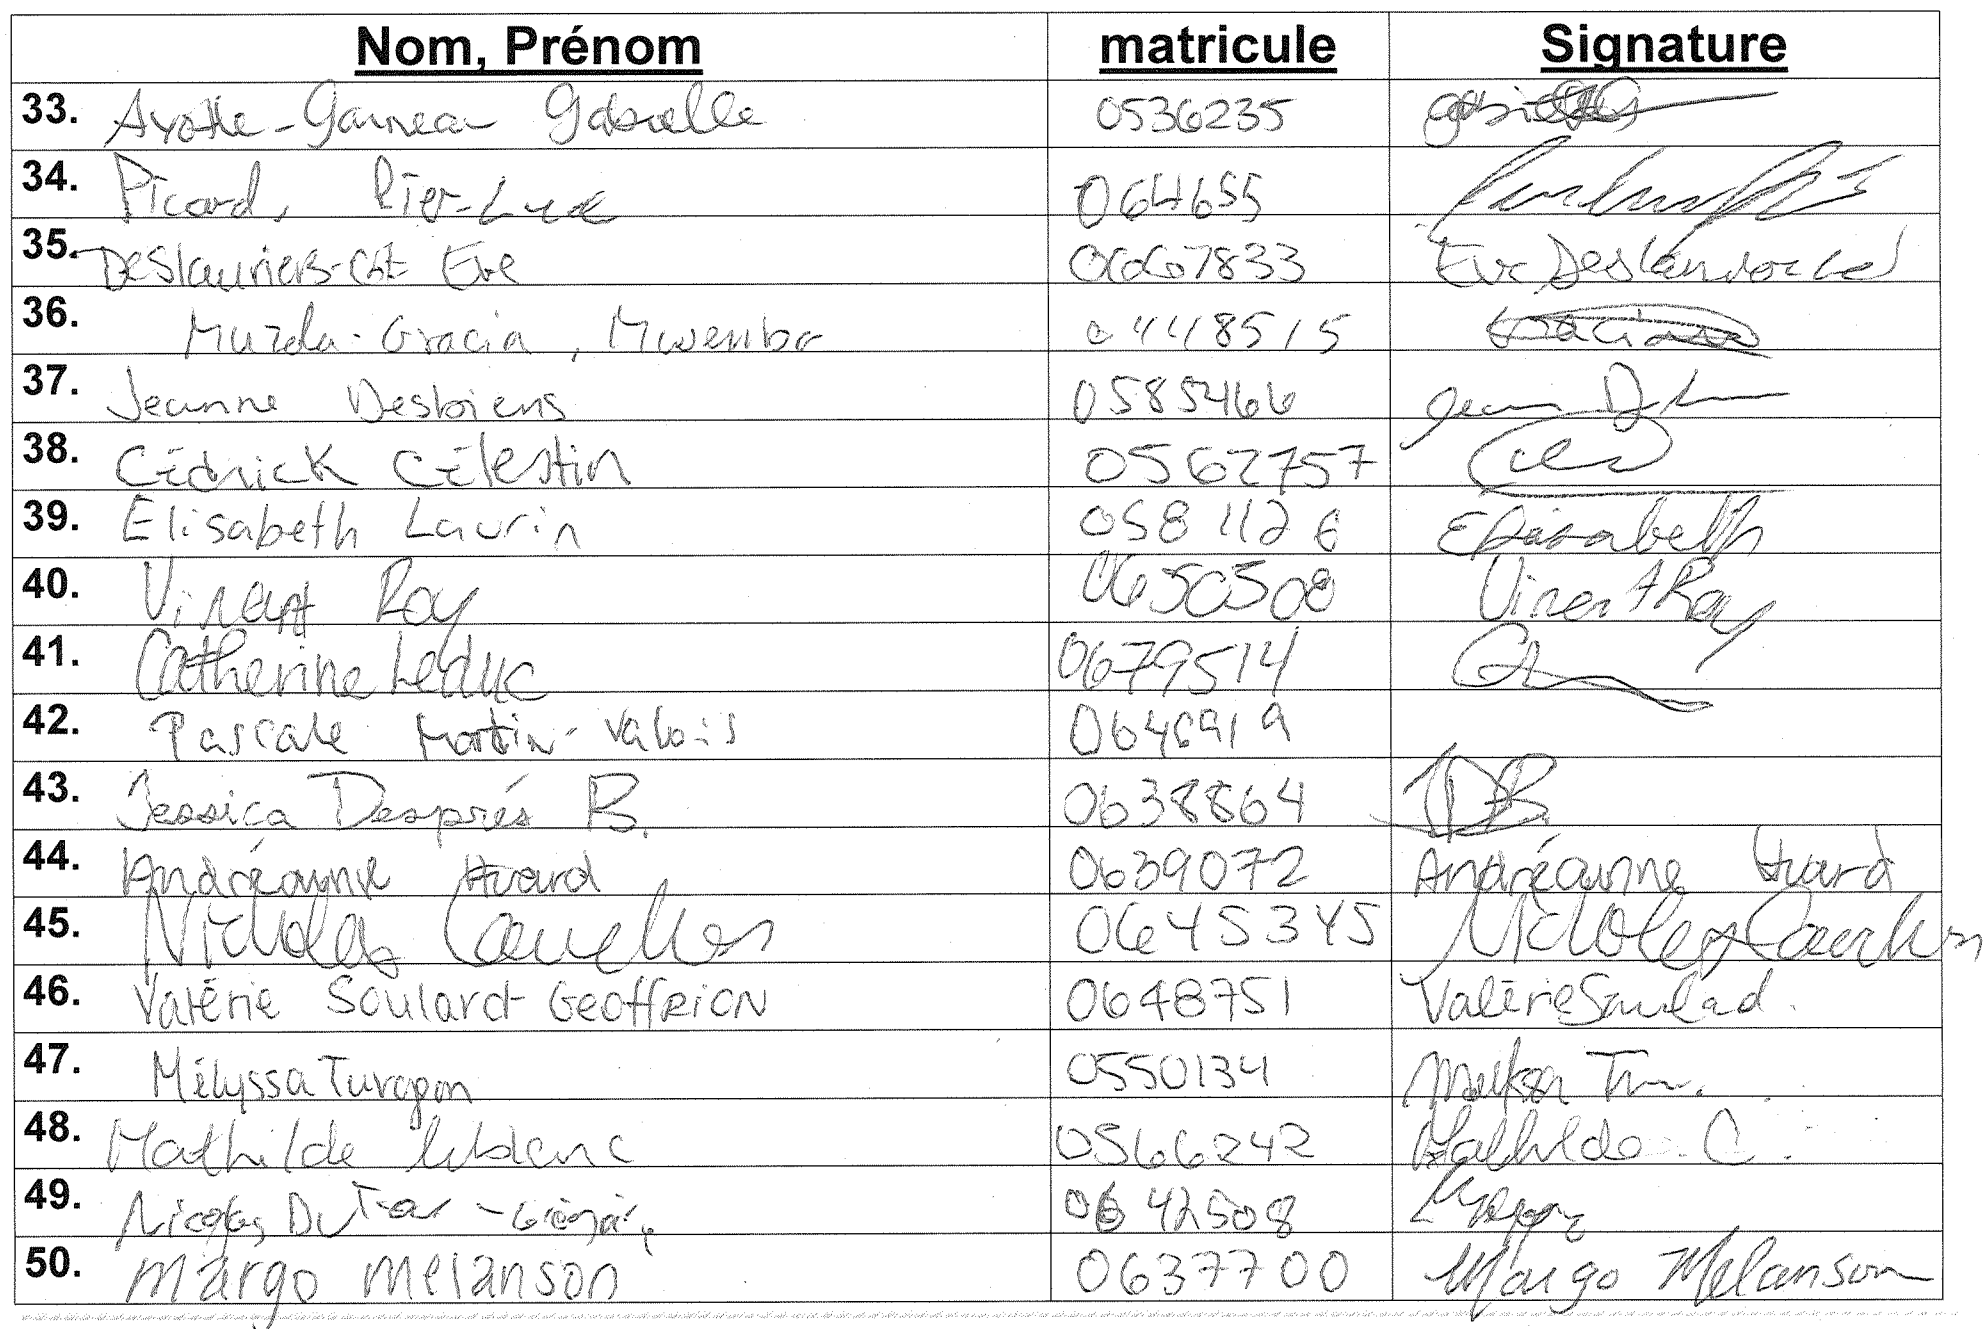 Nom, Prénom matricule Signature
33. Ayotte-Garneau Gabrielle 0536235
34. Picard, Pier-Luc 064655
35. Deslauriers-Côt Eve 0667833 Eve Deslauriers
36. Muzela-Gracia, Mwemba 0448515
37. Jeanne Desbiens 0585466
38. Cédrick Célestin 0562757
39. Elisabeth Laurin 0581126 Elisabeth
40. Vincent Roy 0650508 Vincent Roy
41. Catherine Leduc 0679514
42. Pascale Martin-Valois 0646919
43. Jessica Després B. 0638864 JDB
44. Andréanne Huard 0639072 Andréanne Huard
45. Nickolas 0645345 Nickolas
46. Valérie Soulard-Geoffrion 0648751 Valérie Soulard.
47. Mélyssa Turgeon 0550134
48. Mathilde leblanc 0566242 Mathilde
49. Nicolas 0642508
50. Margo Melanson 0637700 Margo Melanson